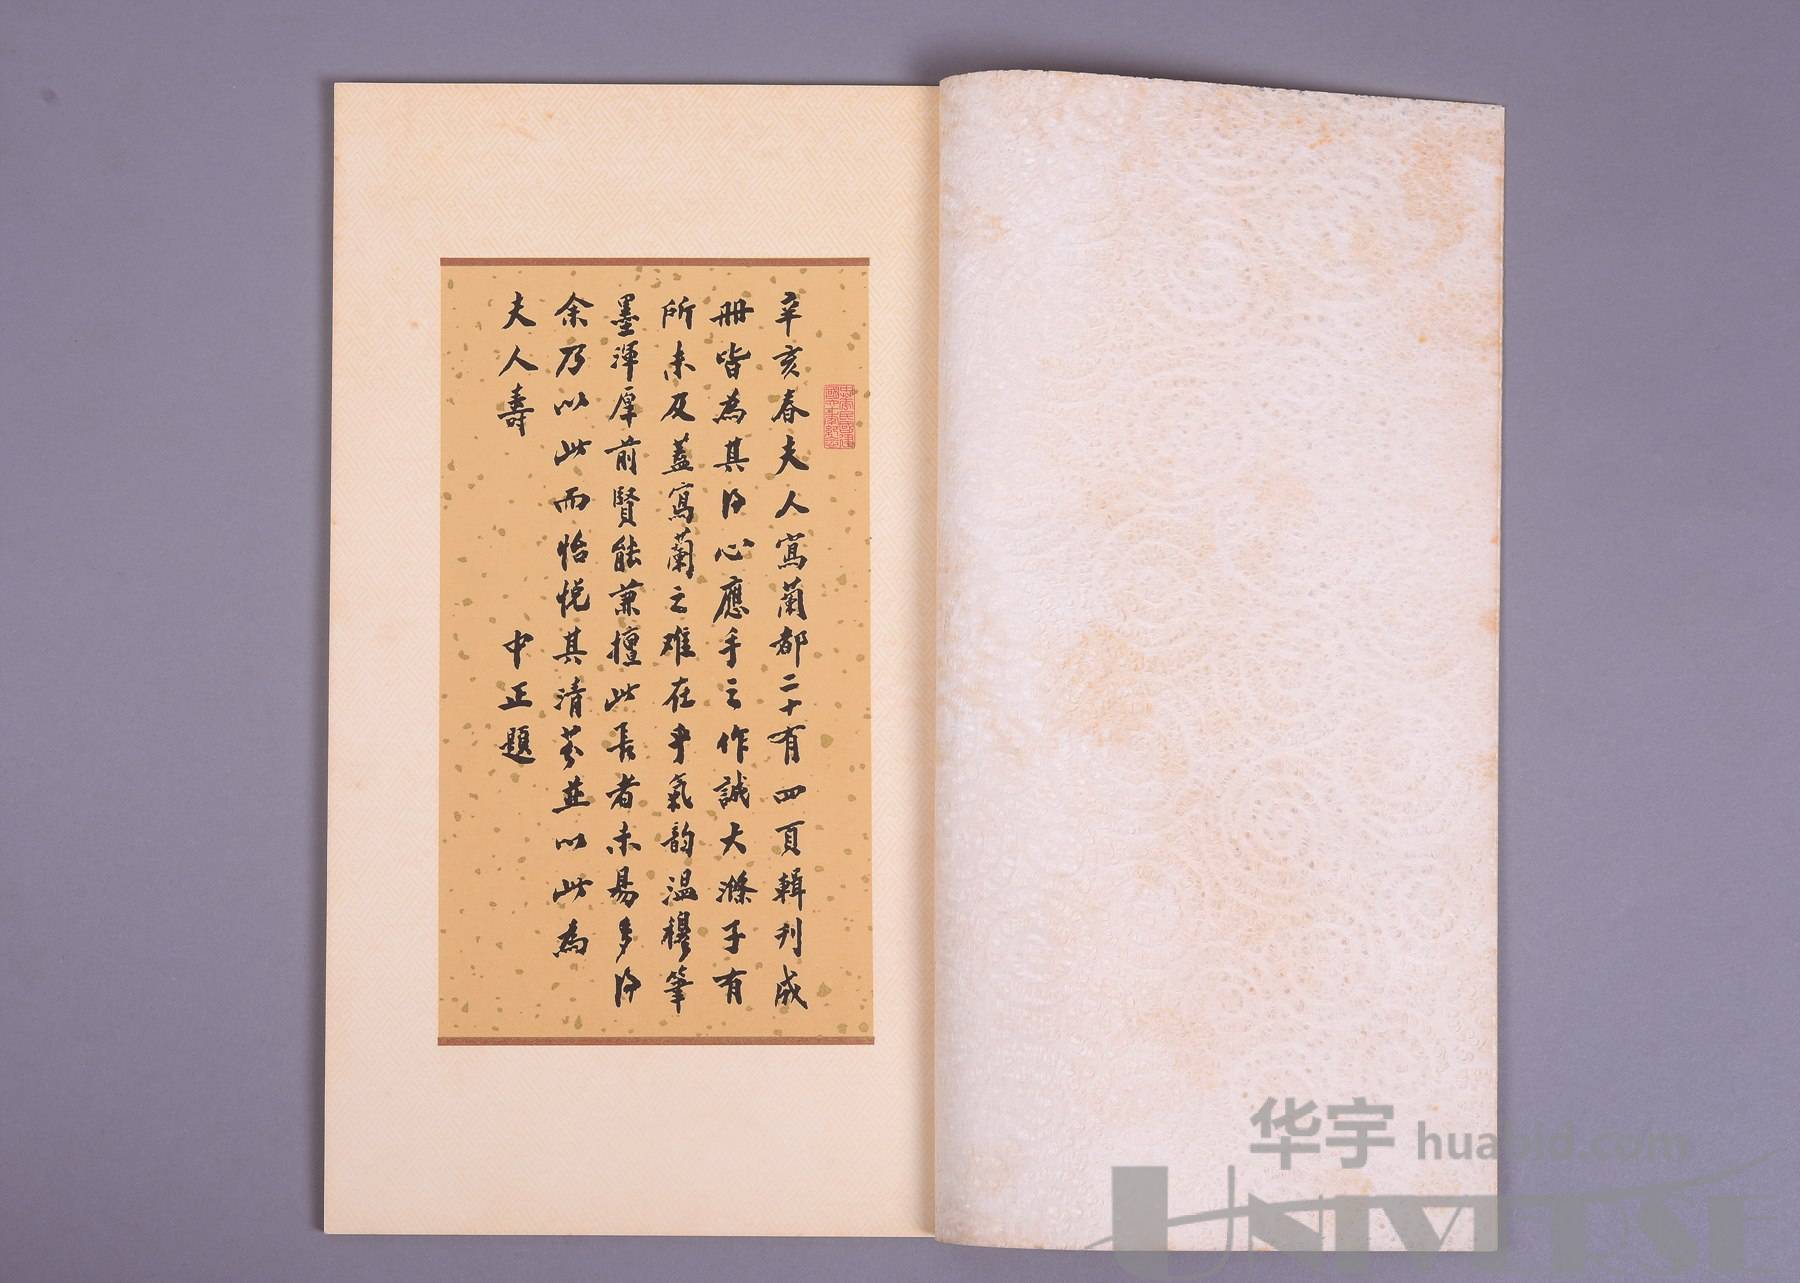 辛亥春夫人寫蘭都二十有四頁輯刊成
冊皆為其得心應手之作誠大滌子有
所未及蓋寫蘭之难在乎氣韵温穆筆
墨渾厚前賢能兼擅此長者未易多得
余乃以此而怡悅其清芬並以此為
夫人壽
中正題
华宇 huabid.com
UNIVERSE